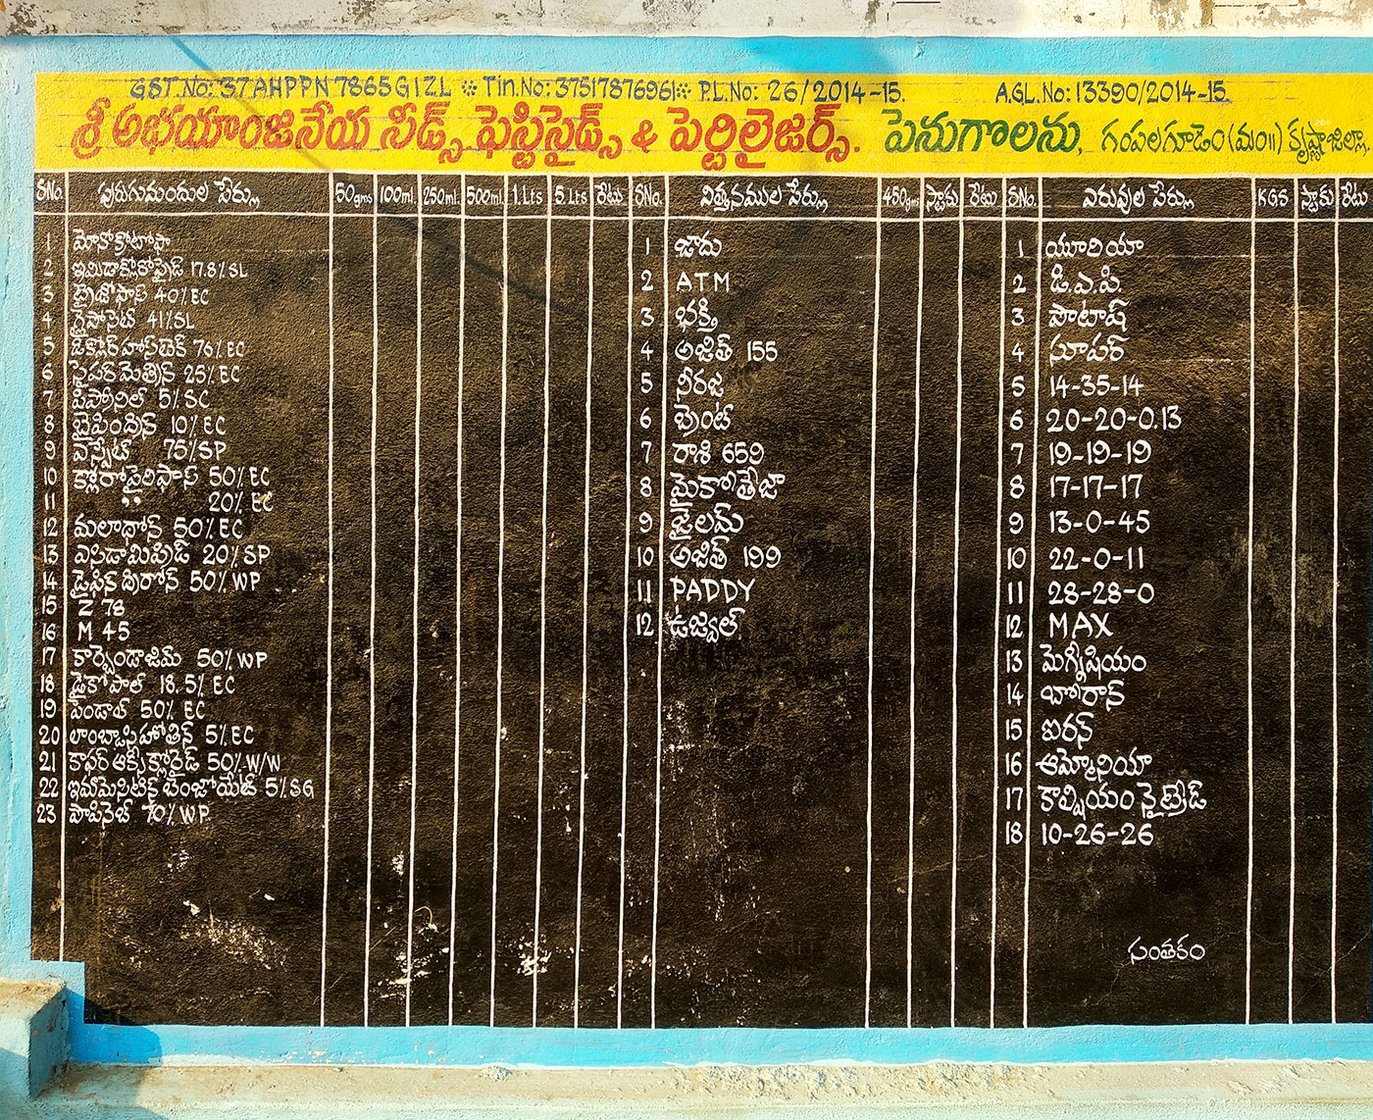 GST.No: 37AHPPN7865G1ZL ※ Tin.No: 37517876961※ P.L.No: 26/2014-15. A.G.L.No: 13390/2014-15
శ్రీ అభయాంజనేయ సీడ్స్, ఫెస్టిసైడ్స్ & పెర్టిలైజర్స్. పెనుగొలను, గంపలగూడెం (మం॥) కృష్ణాజిల్లా.
SNo. పురుగుమందుల పేర్లు 50gms 100ml. 250ml. 500ml. 1.Lts 5.Lts రేటు SNo. విత్తనముల పేర్లు 450gms స్టాకు రేటు SNo. ఎరువుల పేర్లు KGS స్టాకు రేటు
1 మోనోక్రోటోఫా
2 ఇమిడాక్లోరోఫ్రైడ్ 17.8% SL
3 ట్రైజోఫాస్ 40% EC
4 గ్లైఫోసెట్ 41% SL
5 డిక్లోర్ హాస్‌టెక్ 76% EC
6 సైపర్ మెత్రిన్ 25% EC
7 పిప్రోనిల్ 5% SC
8 బైపింద్రిన్ 10% EC
9 ఎస్పేట్ 75% SP
10 క్లోరోపైరిఫాస్ 50% EC
11 " 20% EC
12 మలాథోన్ 50% EC
13 ఎసిడామిప్రిడ్ 20% SP
14 డైఫిన్ థిరాన్ 50% WP
15 Z 78
16 M 45
17 కార్బెండాజిమ్ 50% WP
18 డైకోపాల్ 18.5% EC
19 పెండాల్ 50% EC
20 లాంబ్డాసైహోత్రిన్ 5% EC
21 కాపర్ ఆక్సీక్లోరైడ్ 50% W/W
22 ఇమామెసిటిన్ బెంజోయేట్ 5% SG
23 పాపినెబ్ 70% WP
1 జాదు
2 ATM
3 భక్తి
4 అజిత్ 155
5 నీరజ
6 బ్రెంట్
7 రాశి 659
8 మైకోతేజా
9 జైలమ్
10 అజిత్ 199
11 PADDY
12 ఉజ్వల్
1 యూరియా
2 డి.ఎ.పి.
3 పొటాష్
4 సూపర్
5 14-35-14
6 20-20-0.13
7 19-19-19
8 17-17-17
9 13-0-45
10 22-0-11
11 28-28-0
12 MAX
13 మెగ్నీషియం
14 బోరాన్
15 ఐరన్
16 ఆమ్మోనియా
17 కాల్షియం నైట్రేడ్
18 10-26-26
సంతకం